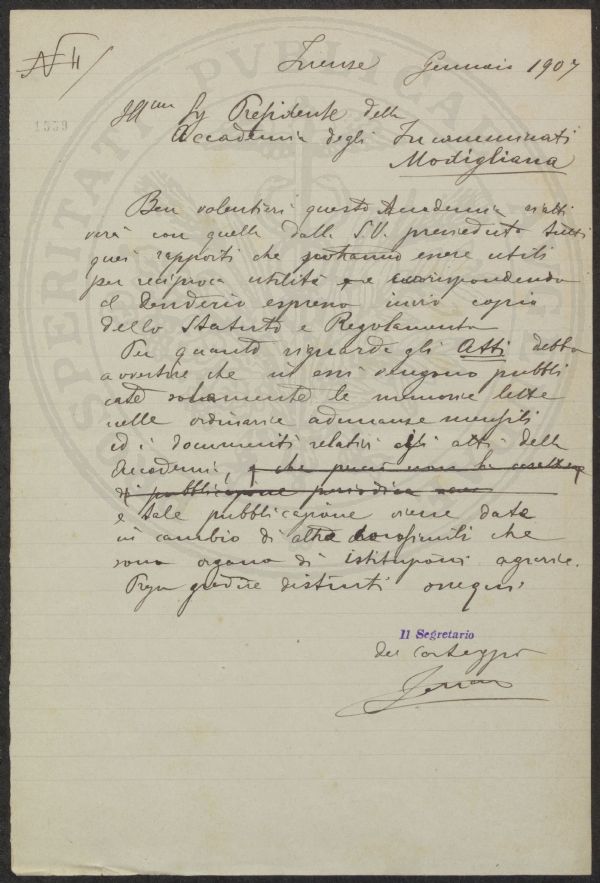 N 4
Firenze Gennaio 1907
1559
Ill.mo Sig Presidente della
Accademia degli Incamminati
Modigliana
Ben volentieri questa Accademia
verà con quella dalla S.V. presieduta tutti
quei rapporti che potranno essere utili
per reciproca utilità e corrispondendo
al desiderio espresso invio copia
dello Statuto e Regolamento
Per quanto riguarda gli Atti debbo
avvertire che in essi vengono pubbli
cate solamente le memorie lette
nelle ordinarie adunanze mensili
ed i documenti relativi agli atti della
Accademia, che perciò non ha carattere
di pubblicazione periodica
e tale pubblicazione viene data
in cambio di altre consimili che
sono organo di istituzioni agrarie.
Prego gradire distinti ossequi
Il Segretario
del carteggio